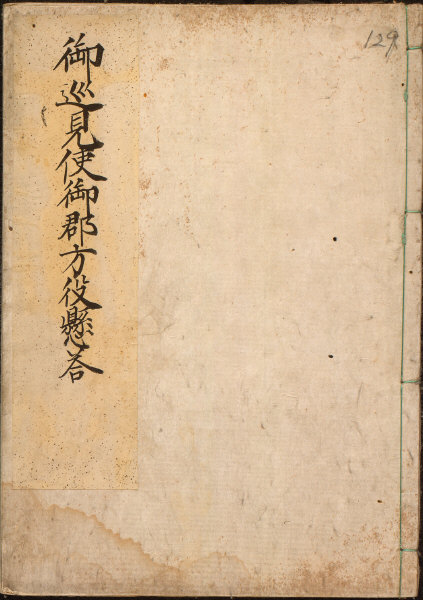 御巡見使御郡方役懸答
129